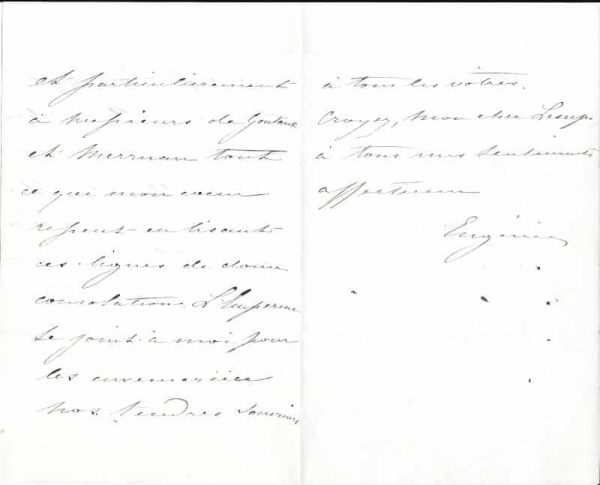 et particulièrement
à messieurs de
et Merruau tout
ce que mon coeur
ressent en lisant
ces lignes de douce
consolation. L'Empereur
se joint à moi pour
les
nos tendres souvenirs
à tous les vôtres.
Croyez, mon cher
à tous mes sentiments
affectueux
Eugénie